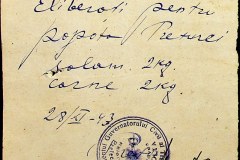 Eliberati pentru
popota Preturei
salam 2 kg.
carne 2 kg.
28/XI-43
Guvernatorului Civil al